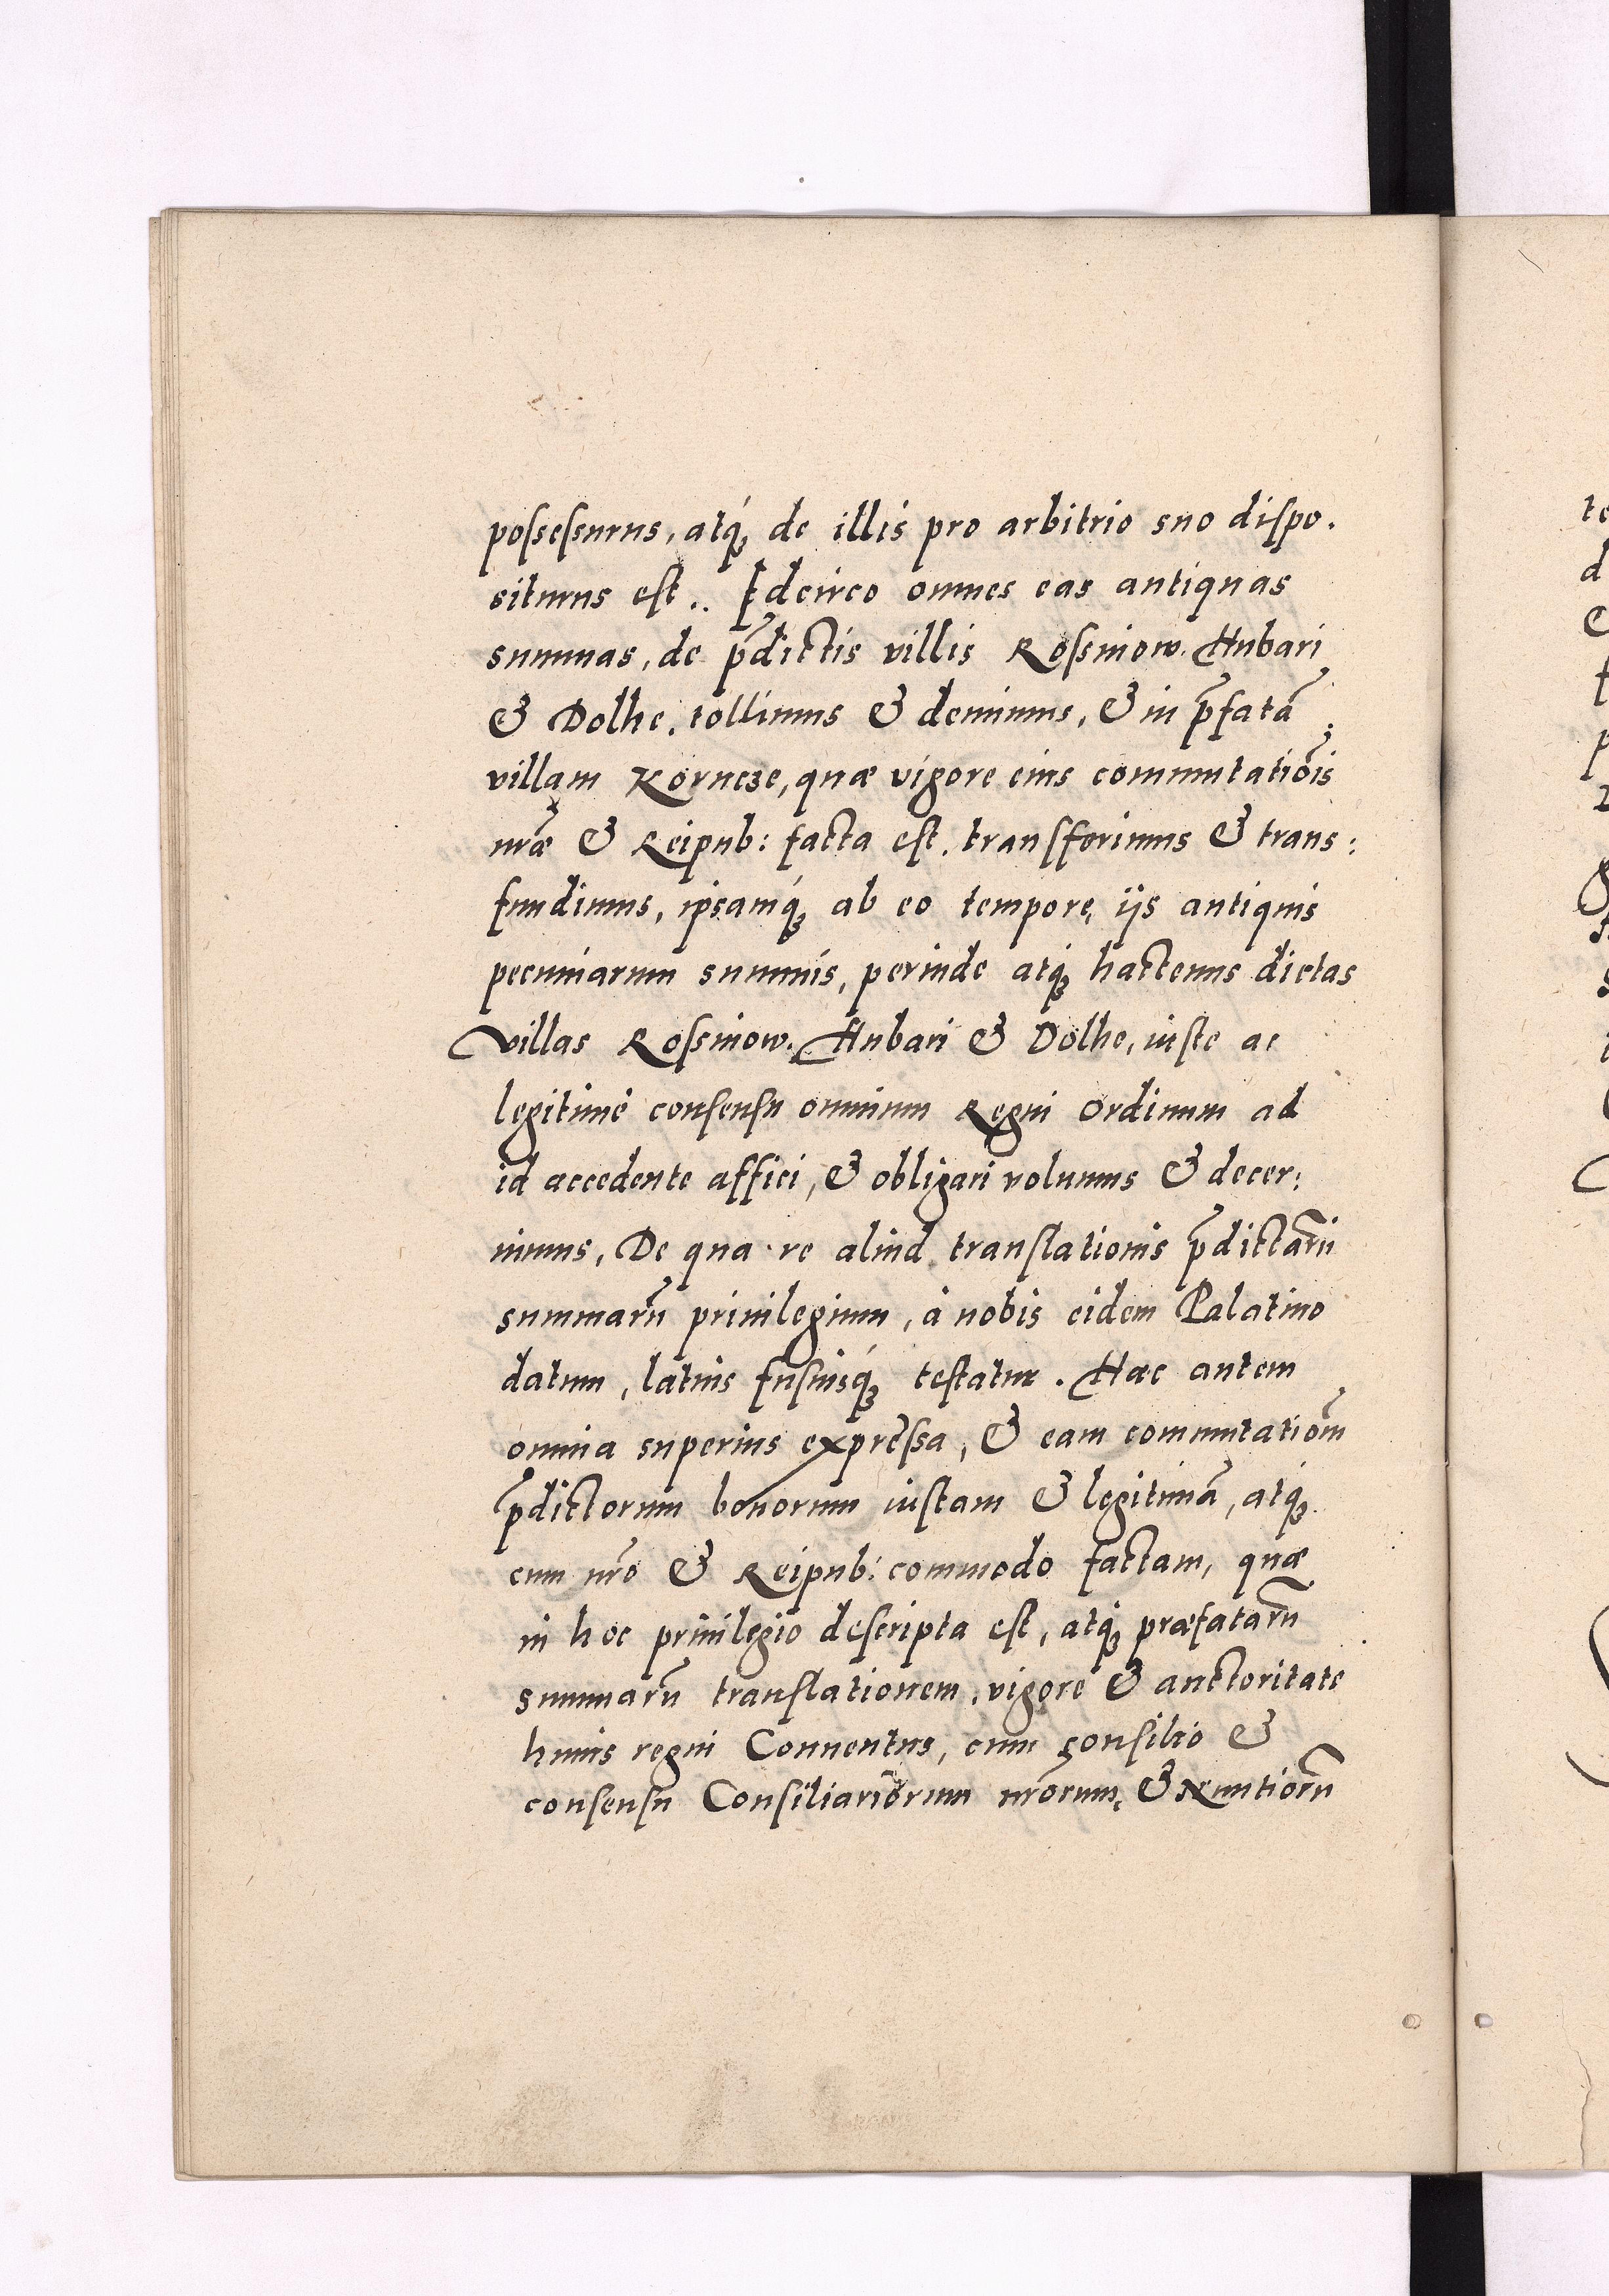 possessurus, atq́ꝫ de illis pro arbitrio suo dispo.
siturus est.. Idcirco omnes eas antiquas
summas, de p̃dictis villis Rossniow. Hubari
& Dolhe, tollimus & demimus, & in p̃fatã
villam Korncze, quæ vigore eius commutatiõis
nr̃æ & Reipub: facta est, transferimus & trans:
fundimus, ipsamq́ꝫ ab eo tempore, ijs antiquis
pecuniarum summis, perinde atq́ꝫ hactenus dictas
villas Rossniow. Hubari & Dolhe, iuste ac
legitimè consensu omnium Regni Ordinum ad
id accedente affici, & obligari volumus & decer:
nimus, De qua re aliud translationis p̃dictarũ
summarũ priuilegium, à nobis eidem Palatino
datum, latius fusiusq́ꝫ testatur. Hæc autem
omnia superius expressa, & eam commutatiõm
p̃dictorum bonorum iustam & legitimã, atq́ꝫ
cum nr̃o & Reipub: commodo factam, quæ
in hoc priuilegio descripta est, atq́ꝫ præfatarũ
summarũ translationem, vigore & auctoritate
huius regni Conuentus, cum consilio &
consensu Consiliariorum nr̃orum, & Nuntiorũ